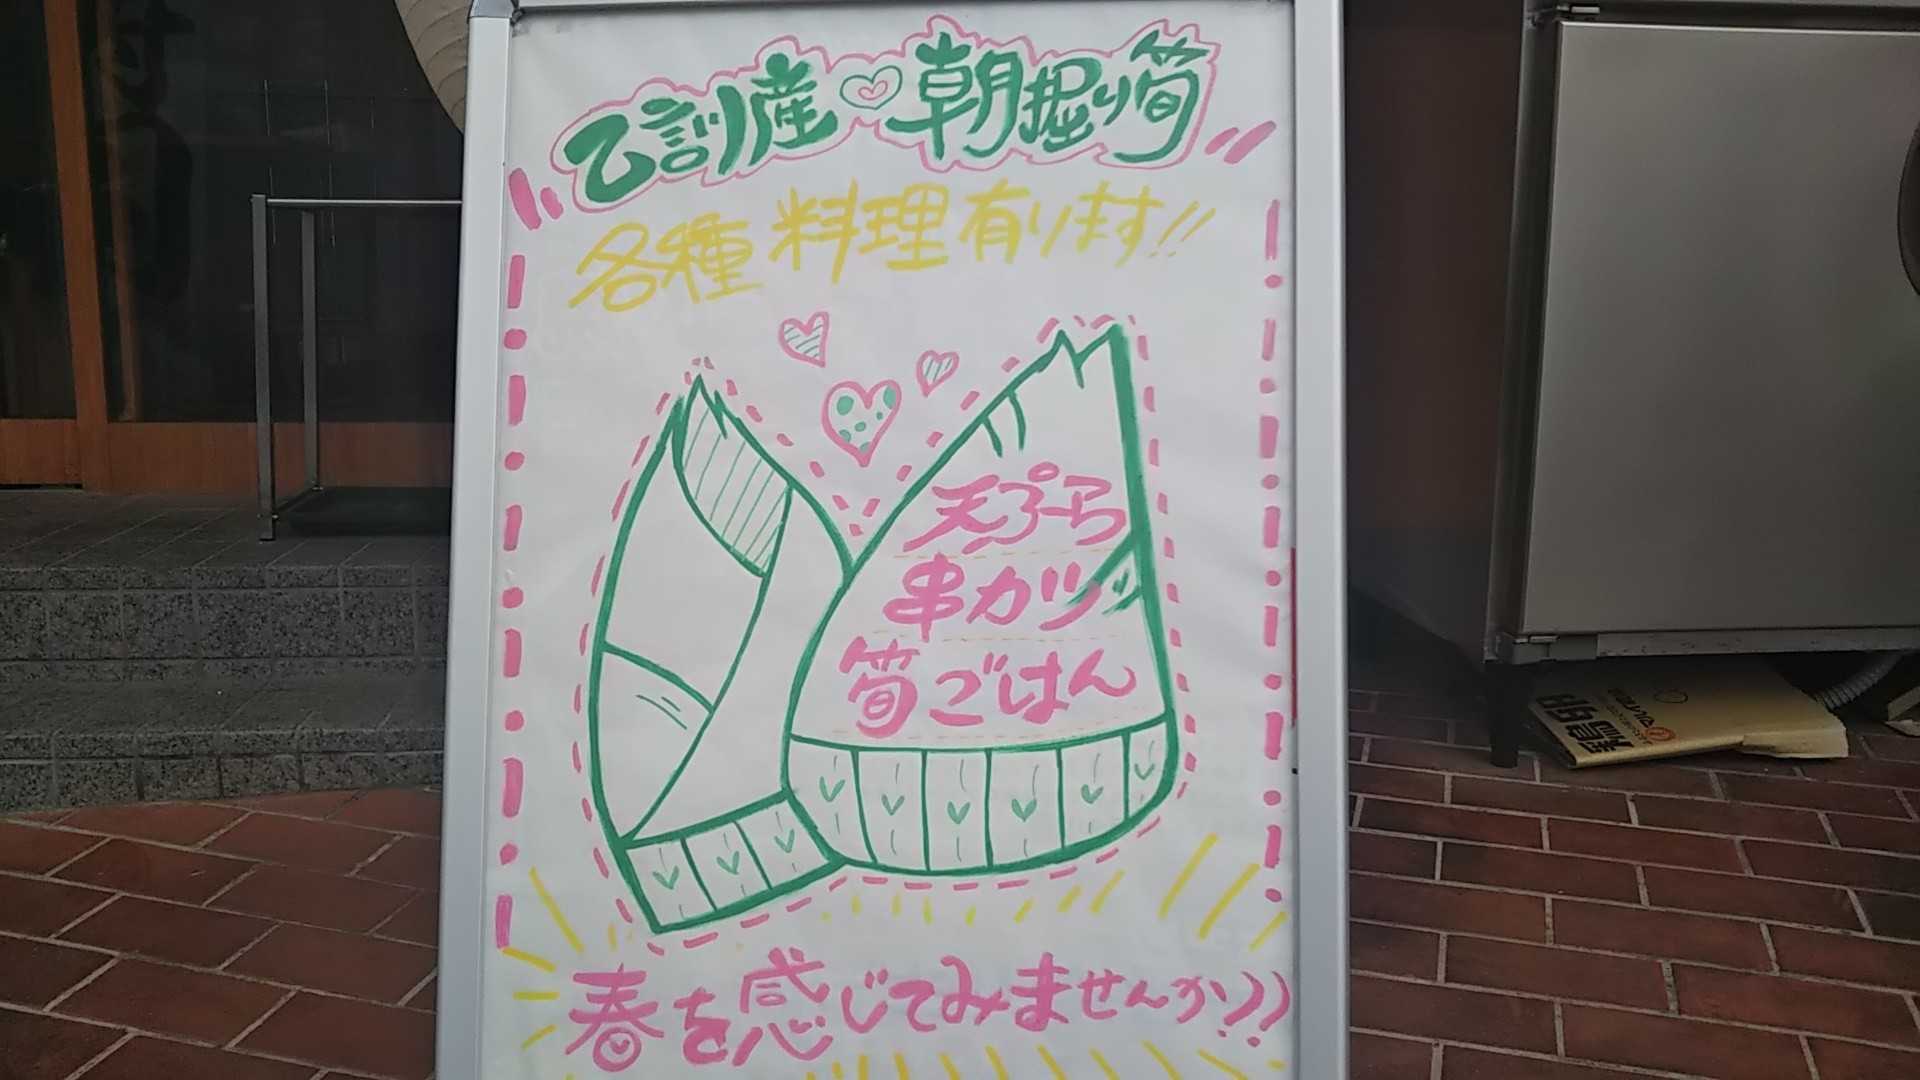 乙訓産♡朝掘り筍
各種料理有ります!!
天ぷら
串カツ
筍ごはん
春を感じてみませんか??